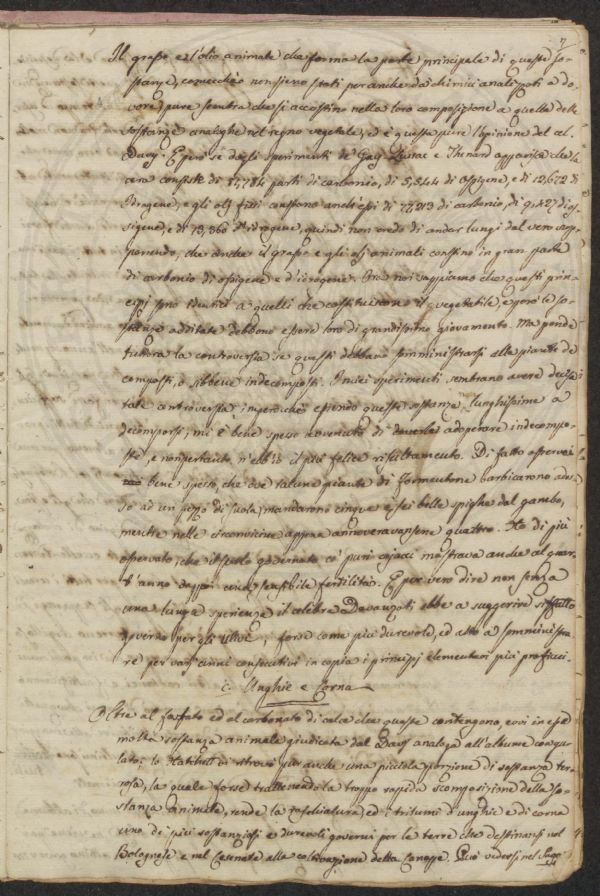 7
Il grasso, e l'olio animale che forma la parte principale di queste so-
stanze, comecchè non sieno stati per anche da chimici analizzati a do-
vere, pure sembra che si accostino nella loro composizione a quella delle
sostanze analoghe nel regno vegetale, ed è questa pure l'opinione del cel.
Davy. E però se dagli sperimenti de' Gay Lussac e Thenard apparisce che la
cera consiste di 81,784 parti di carbonio, di 5,544 di ossigene, e di 12,672 di
Idrogene, e gli olj fissi constano anch'essi di 77,213 di carbonio, di 9,427 di os-
sigene, e di 13,360 d'idrogene, quindi non credo di andar lungi dal vero sup-
ponendo, che anche il grasso e gli olj animali constino in gran parte
di carbonio di ossigene e d'idrogene. Ora noi sappiamo che questi prin-
cipj sono identici a quelli che costituiscono il vegetabile, e però le so-
stanze additate debbono essere loro di grandissimo giovamento. Ma pende
tuttora la controversia se questi debbano somministrarsi alle piante de
composti, o sibbene indecomposti. I miei sperimenti sembrano avere decisa
tale controversia, imperocchè essendo queste sostanze lunghissime a
decomporsi, mi è bene spesso avvenuto di adoperare indecompo-
ste, e nonpertanto n'ebbi il più felice risultamento. Di fatto osservai
bene spesso, che ove talune piante di formentone barbicarono ados-
so ad un pezzo di suola, mandarono cinque e sei belle spighe dal gambo,
mentre nelle circonvicine appena annoveravansene quattro. Ho di più
osservato, che il suolo governato co' puri cojacci mostrava anche al quar-
t'anno dappoi una sensibile fertilità. E pur vero dire non senza
una lunga sperienza il celebre Davanzati ebbe a suggerire siffatto
governo per gli ulivi, forse come più durevole, ed atto a somministra-
re per varj anni consecutivi in copia i principj elementari più proficui.
C. Unghie e Corna
Oltre al fosfato ed al carbonato di calce che queste contengono, evvi in esse
molta sostanza animale giudicata dal Davy analoga all'albume coagu-
lato: lo Hatchett vi ritrovò pur anche una picciola porzione di sostanza ter-
rosa, la quale forse trattenendo la troppo rapida scomposizione della so-
stanza animale, rende la raschiatura, ed i tritumi d'unghie e di corna
uno de' più sostanziosi e durevoli governi per le terre che destinansi nel
Bolognese e nel Cesenate alla coltivazione della Canape. Può vedersi nel Sag-